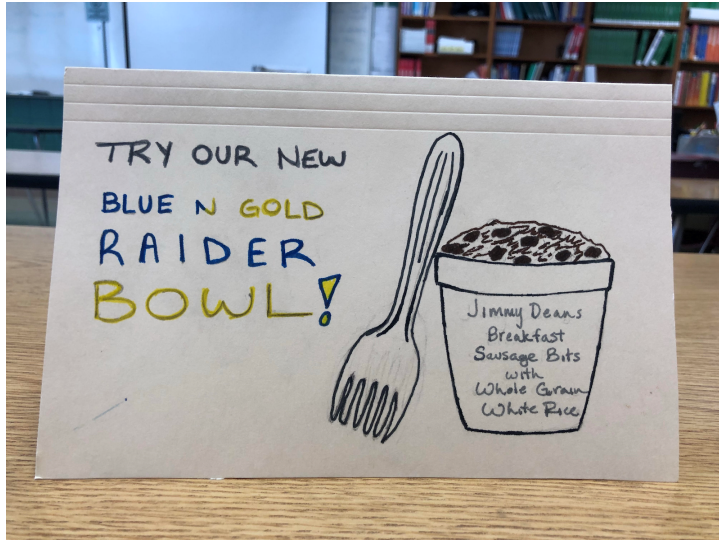 TRY OUR NEW
BLUE N GOLD
RAIDER
BOWL!
Jimmy Deans
Breakfast
Sausage Bits
with
Whole Grain
White Rice